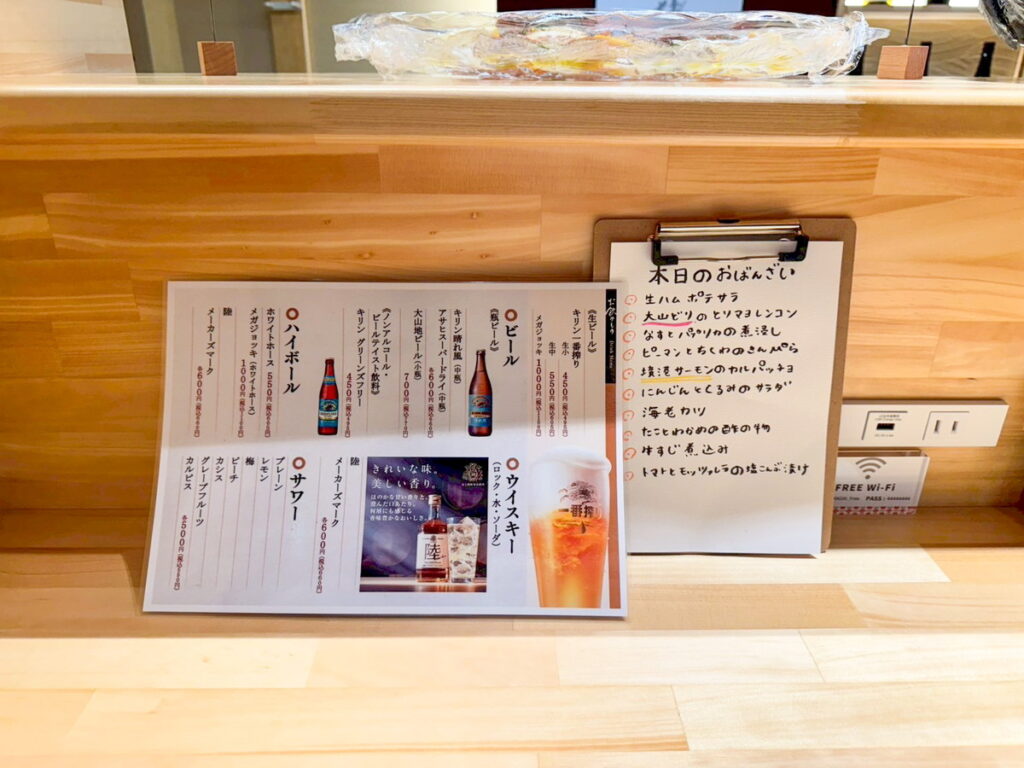 お飲みもの Drink Menu
ビール
《生ビール》
キリン一番搾り
生小 450円
生中 550円
メガジョッキ 1000円
《瓶ビール》
キリン晴れ風（中瓶）
アサヒスーパードライ（中瓶）
各600円（税込660円）
大山地ビール（小瓶）
700円
《ノンアルコール・
ビールテイスト飲料》
キリン グリーンズフリー
450円
ハイボール
ホワイトホース 550円
メガジョッキ（ホワイトホース）
1000円
陸
メーカーズマーク
各600円（税込660円）
ウイスキー
（ロック・水・ソーダ）
きれいな味。
美しい香り。
陸
陸
メーカーズマーク
各600円（税込660円）
サワー
プレーン
レモン
梅
ピーチ
カシス
グレープフルーツ
カルピス
各500円（税込550円）
一番搾り
本日のおばんざい
生ハム ポテサラ
大山どりのとりマヨレンコン
なすとパプリカの煮浸し
ピーマンとちくわのきんぴら
境港サーモンのカルパッチョ
にんじんとくるみのサラダ
海老カツ
たことわかめの酢の物
牛すじ煮込み
トマトとモッツァレラの塩こんぶ漬け
FREE Wi-Fi